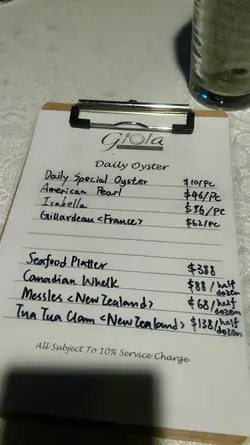 Gioia
Daily Oyster
Daily Special Oyster $10/pc
American Pearl $46/pc
Isabella $56/pc
Gillardeau <France> $62/pc
Seafood Platter $388
Canadian Whelk $88/half dozen
Messles <New Zealand> $68/half dozen
Tua Tua Clam <New Zealand> $138/half dozen
All Subject To 10% Service Charge